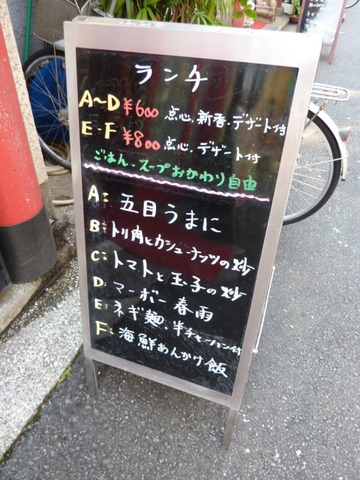 ランチ
A〜D ¥600 点心、新香、デザート付
E・F ¥800 点心、デザート付
ごはん、スープおかわり自由
A: 五目うまに
B: トリ肉とカシューナッツの炒
C: トマトと玉子の炒
D: マーボー春雨
E: ネギ麺、半チャーハン付
F: 海鮮あんかけ飯